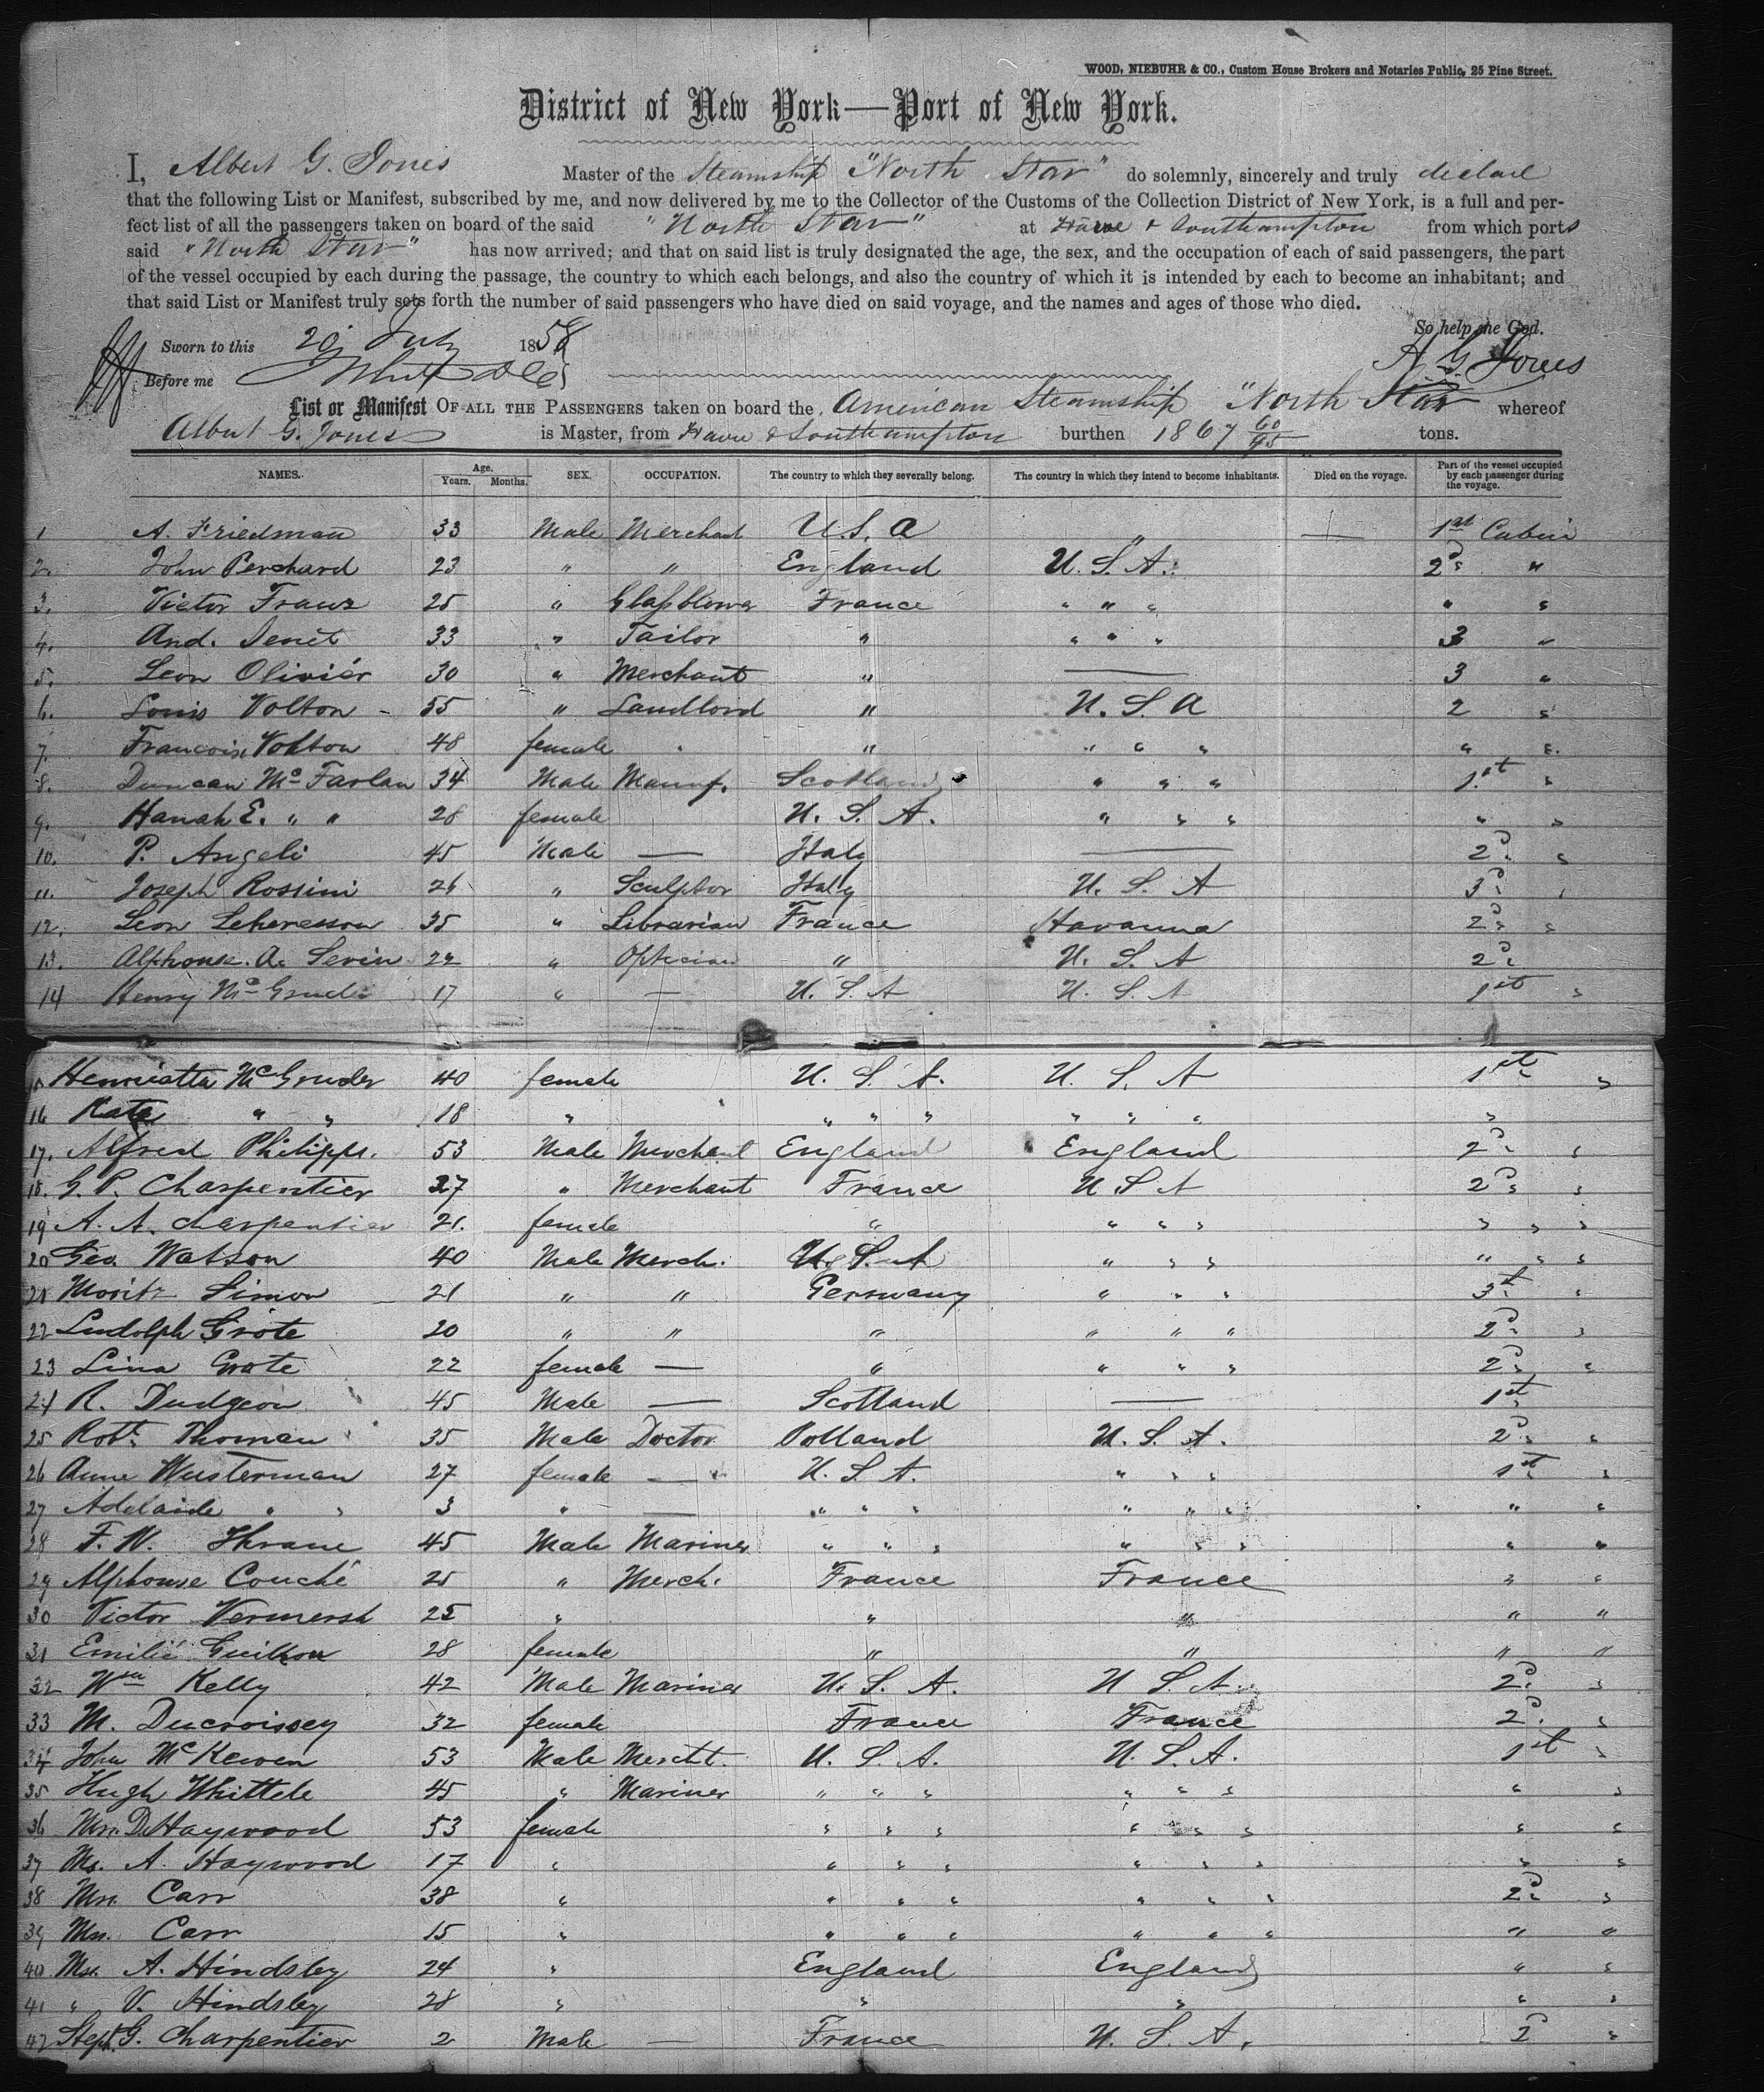 WOOD, NIEBUHR & CO., Custom House Brokers and Notaries Public, 25 Pine Street.
District of New York—Port of New York.
I, Albert G. Jones Master of the Steamship "North Star" do solemnly, sincerely and truly declare
that the following List or Manifest, subscribed by me, and now delivered by me to the Collector of the Customs of the Collection District of New York, is a full and per-
fect list of all the passengers taken on board of the said "North Star" at Havre & Southampton from which ports
said "North Star" has now arrived; and that on said list is truly designated the age, the sex, and the occupation of each of said passengers, the part
of the vessel occupied by each during the passage, the country to which each belongs, and also the country of which it is intended by each to become an inhabitant; and
that said List or Manifest truly sets forth the number of said passengers who have died on said voyage, and the names and ages of those who died.
So help me God.
Sworn to this July 1858
A G Jones
Before me
List or Manifest OF ALL THE PASSENGERS taken on board the American Steamship "North Star" whereof
Albert G. Jones is Master, from Havre & Southampton burthen 1867 60/95 tons.
NAMES. Age. Years. Months. SEX. OCCUPATION. The country to which they severally belong. The country in which they intend to become inhabitants. Died on the voyage. Part of the vessel occupied by each passenger during the voyage.
1 A. Friedman 33 Male Merchant U.S.A " — 1st Cabin
2. John Perchard 23 " " England U.S.A. 2d "
3. Victor Franz 25 " Glassblower France " " " " "
4. And. 33 " Tailor " " " " 3 "
5. Leon Oliviér 30 " Merchant " — 3 "
6. Louis Volton - 55 " Landlord " U.S.A 2 "
7. Francoise Volton 48 female " " " " " " "
8. Duncan Mc Farlan 34 Male Manuf. Scotland " " " 1st "
9. Hanah E. " " 28 female U.S.A. " " " " "
10. P. Angeli 45 Male — Italy — 2d "
11. Joseph Rossini 26 " Sculptor Italy U.S.A 3d "
12. Leon 35 " Librarian France Havanna 2d "
13. Alphonse. A. Levin 22 " Optician " U.S.A 2d
14 Henry Mc Gruder 17 " — U.S.A U.S.A 1st "
15 Henrietta McGruder 40 female U.S.A. U.S.A 1st "
16 Kate " " 18 " " " " " " " "
17. Alfred Philipps. 53 Male Merchant England England 2d "
18. G. P. Charpentier 27 " Merchant France U.S.A 2d "
19 A. A. Charpentier 21. female " " " " " " "
20 Geo. Watson 40 Male Merch. U.S.A " " " " " "
21 Moritz Simon 21 " " Germany " " " 3d "
22 Ludolph Grote 20 " " " " " " 2d "
23 Lina Grote 22 female — " " " " 2d "
24 R. Dudgeon 45 Male — Scotland — 1st
25 Robt. Thoman 35 Male Doctor Polland U.S.A. 2d "
26 Anne Wusterman 27 female — U.S.A. " " " 1st "
27 Adelaide " " 3 " — " " " " " " " "
28 F. W. Thrane 45 Male Mariner " " " " " " " "
29 Alphonse Couché 25 " Merch. France France " "
30 Victor Vermersh 25 " " " " "
31 Emilie 28 female " " " "
32 Wm Kelly 42 Male Mariner U.S.A. U.S.A. 2d "
33 M. Ducroissey 32 female France France 2d "
34 John McKewen 53 Male Mercht. U.S.A. U.S.A. 1st "
35 Hugh Whittele 45 " Mariner " " " " " " " "
36 Mrs. D. Haywood 53 female " " " " " " " "
37 Ms. A. Haywood 17 " " " " " " " " "
38 Mrs. Carr 38 " " " " " " " 2d "
39 Ms. Carr 15 " " " " " " " " "
40 Ms. A. Hindsley 24 " England England " "
41 " V. Hindsley 28 " " " " "
42 Steph. G. Charpentier 2 Male — France U.S.A. 2d "